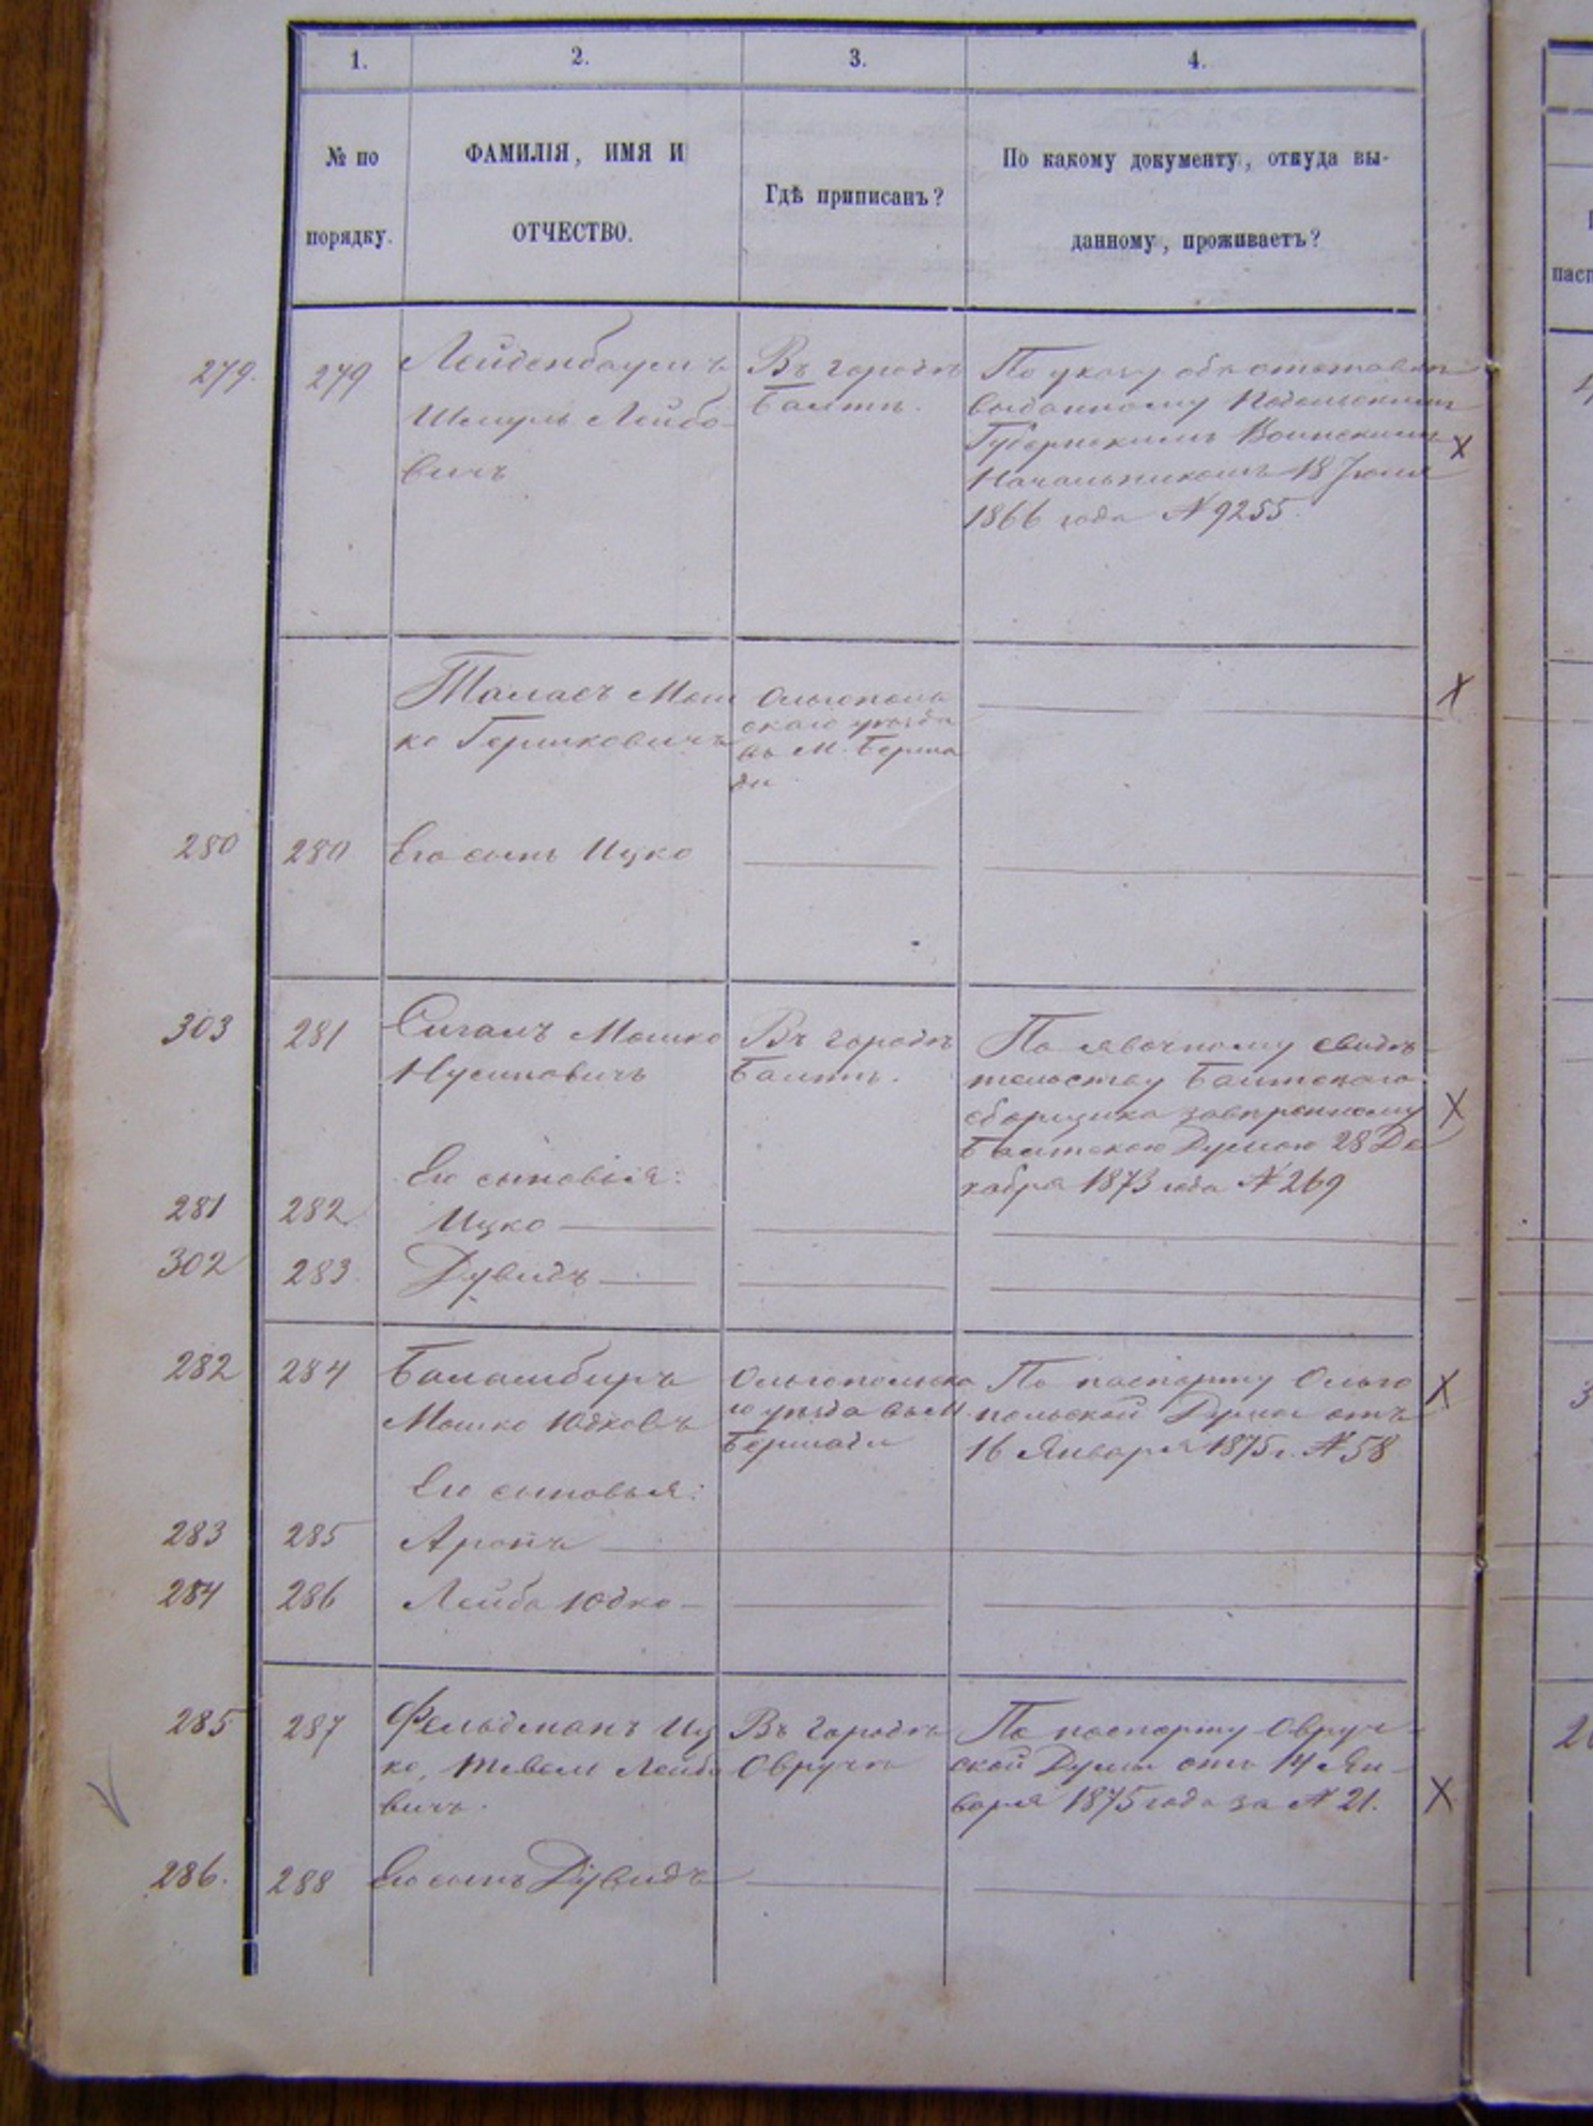 1.
2.
3.
4.
№ по
порядку.
ФАМИЛІЯ, ИМЯ И
ОТЧЕСТВО.
Гдѣ приписанъ?
По какому документу, откуда вы-
данному, проживаетъ?
279.
279
Лейденбаумъ
Шмуль Лейбо-
вичъ
Въ городѣ
Балтѣ.
По указу объ отставкѣ
выданному Подольскимъ
Губернскимъ Воинскимъ
Начальникомъ 18 Іюля
1866 года № 9255.
Х
Талясъ Мош
ко Гершковичъ
Ольгополь
скаго уѣзда
въ М. Берша
ди
Х
280
280
Его сынъ Ицко
303
281
Сигалъ Мошко
Нусиновичъ
Въ городѣ
Балтѣ.
По явочному свидѣ-
тельству Балтскаго
сборщика завѣренному
Балтскою Думою 28 Де
кабря 1873 года № 269
Х
Его сыновья:
281
282
Ицко
302
283
Дувидъ
282
284
Мошко Юдковъ
Ольгопольска
го уѣзда въ М.
Бершади
По паспорту Ольго
польской Думы отъ
16 Января 1875 г. № 58
Х
Его сыновья:
283
285
Аронъ
284
286
Лейба Юдко
285
287
Фельдманъ Иц
ко, Тевель Лейбо
вичъ.
Въ городѣ
Овручѣ
По паспорту Овруч-
ской Думы отъ 14 Ян-
варя 1875 года за № 21.
Х
286.
288
Его сынъ Дувидъ
пасп